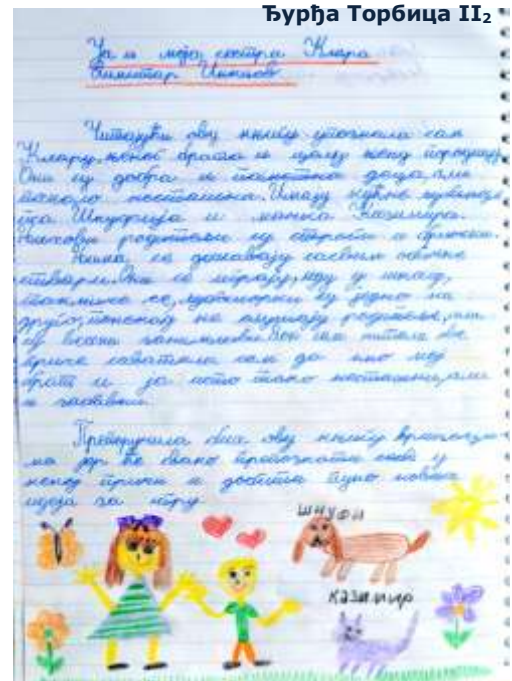 Ђурђа Торбица II₂
Ја и моја сестра Клара
Димитар Инкиов
Читајући ову књигу упознала сам
Клару, њеног брата и целу њену породицу.
Они су добра и паметна деца, али
помало несташна. Имају кућне љубимце
пса Шнуфија и мачка Казимира.
Њихови родитељи су строги и брижни.
Њима се дешавају сасвим обичне
ствари. Они се играју, иду у школу,
такмиче се, љубоморни су једно на
друго, понекад не слушају родитеље, али
су веома занимљиви. Док сам читала ове
приче схватила сам да смо мој
брат и ја исто тако несташни, али
и забавни.
Препоручила бих ову књигу вршњаци-
ма јер ће свако препознати себе у
некој причи и добити пуно нових
идеја за игру.
ШНУФИ
КАЗИМИР